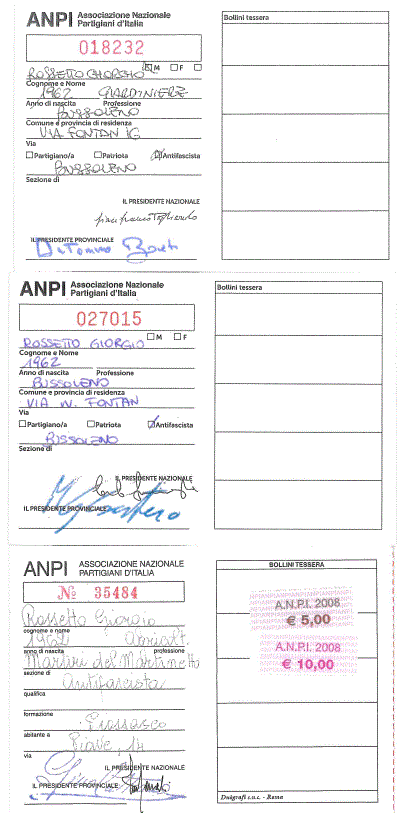 ANPI Associazione Nazionale
Partigiani d'Italia
Bollini tessera
018232
M F
ROSSETTO GIORGIO
Cognome e Nome
1962 GIARDINIERE
Anno di nascita Professione
BUSSOLENO
Comune e provincia di residenza
VIA FONTAN 16
Via
Partigiano/a Patriota Antifascista
BUSSOLENO
Sezione di
IL PRESIDENTE NAZIONALE
IL PRESIDENTE PROVINCIALE
ANPI Associazione Nazionale
Partigiani d'Italia
Bollini tessera
027015
M F
ROSSETTO GIORGIO
Cognome e Nome
1962
Anno di nascita Professione
BUSSOLENO
Comune e provincia di residenza
VIA W. FONTAN
Via
Partigiano/a Patriota Antifascista
BUSSOLENO
Sezione di
IL PRESIDENTE NAZIONALE
IL PRESIDENTE PROVINCIALE
ANPI ASSOCIAZIONE NAZIONALE
PARTIGIANI D'ITALIA
BOLLINI TESSERA
№ 35484
Rossetto Giorgio
cognome e nome
1962
anno di nascita professione
Martiri del Martinetto
sezione di
Antifascista
qualifica
formazione
Piossasco
abitante a
Piave, 14
via
IL PRESIDENTE NAZIONALE
IL PRESIDENTE PROVINCIALE
A.N.P.I. 2008
€ 5,00
A.N.P.I. 2008
€ 10,00
Dulgrafi s.n.c. - Roma